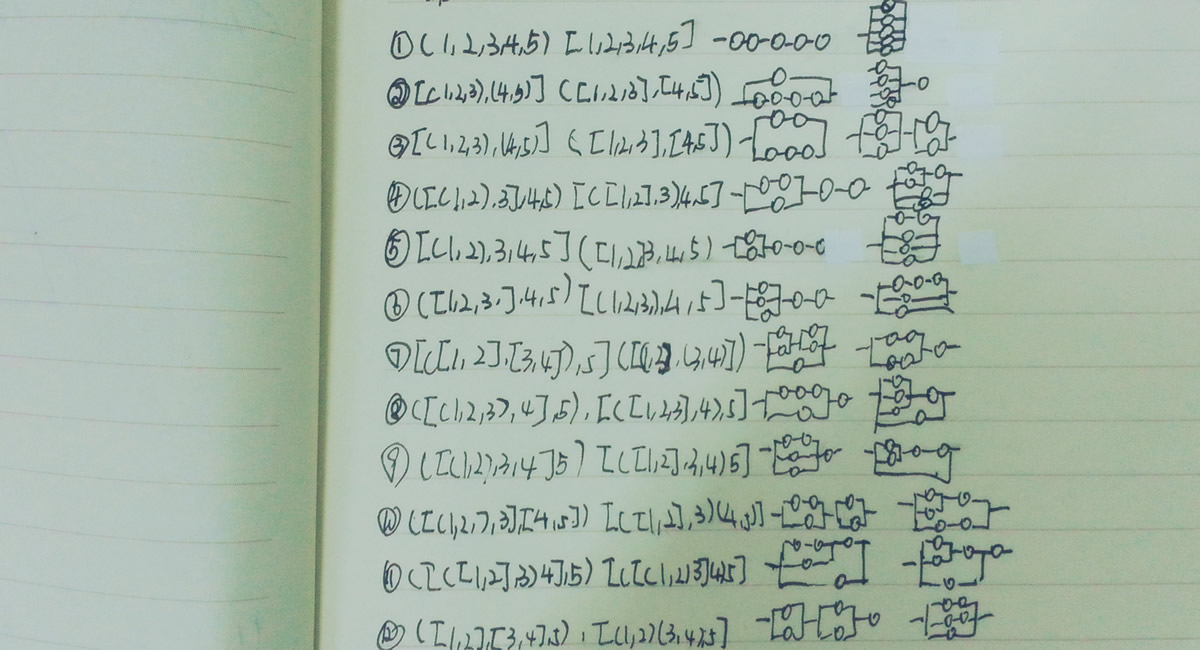 ① (1,2,3,4,5) [1,2,3,4,5]
② [(1,2,3),(4,5)] ([1,2,3],[4,5])
③ [(1,2,3),(4,5)] ([1,2,3],[4,5])
④ ([(1,2),3],4,5) [([1,2],3)4,5]
⑤ [(1,2),3,4,5] ([1,2]3,4,5)
⑥ ([1,2,3,],4,5) [(1,2,3),4,5]
⑦ [([1,2],[3,4]),5] ([(1,2),(3,4)])
⑧ ([(1,2,3),4],5), [([1,2,3],4),5]
⑨ ([(1,2),3,4]5) [([1,2],3,4)5]
⑩ ([(1,2,),3][4,5]) [([1,2],3)(4,5)]
⑪ ([([1,2],3)4],5) [([(1,2)3]4)5]
⑫ ([1,2],[3,4],5), [(1,2)(3,4),5]